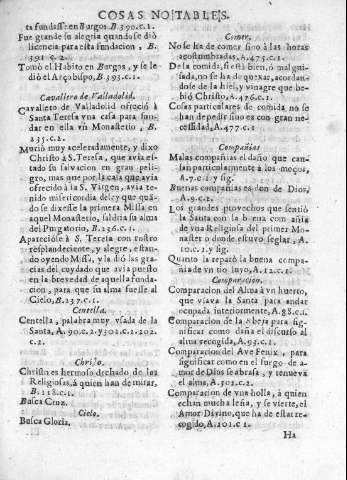 COSAS NOTABLES.
ta fundasse en Burgos. B.390.c.1.
Fue grande su alegria quando se diò
licencia para esta fundacion, B.
391.c.2.
Tomò el Habito en Burgos, y se le
diò el Arçobispo, B.393.c.1.
Cavallero de Valladolid.
Cavallero de Valladolid ofreciò à
Santa Teresa vna casa para fun-
dar en ella vn Monasterio, B.
235.c.2.
Muriò muy aceleradamente, y dixo
Christo à S. Teresa, que avia esta-
do su salvacion en gran peli-
gro, mas que por la casa que avia
ofrecido à la S. Virgen, avia te-
nido misericordia del, y que quã-
do se dixesse la primera Missa en
aquel Monasterio, saldria su alma
del Purgatorio, B.236.c.1.
Apareciòse à S. Teresa con rostro
resplandeciente, y alegre, estan-
do oyendo Missa, y la diò las gra-
cias del cuydado que avia puesto
en la brevedad de aquella funda-
cion, para que su alma fuesse al
Cielo, B.237.c.1.
Centella.
Centella, palabra muy vsada de la
Santa, A.90.c.2. y 301.c.2. 302.
c.2.
Christo.
Christo es hermoso dechado de los
Religiosas, à quien han de mirar,
B.118.c.1.
Busca Cruz.
Cielo.
Busca Gloria.
Comer.
No se ha de comer sino à las horas
acostumbradas, A.475.c.1.
De la comida, si està bien, ò mal gui-
sada, no se ha de quexar, acordan-
dose de la hiel, y vinagre que be-
biò Christo, A.476.c.1.
Cosas particulares de comida no se
han de pedir sino es con gran ne-
cessidad, A.477.c.1
Compañias
Malas compañias el daño que cau-
san particularmente à los moços,
A.7.c.1. y sig.
Buenas compañias es don de Dios,
A.9.c.1.
Los grandes provechos que sentiò
la Santa con la buena compañia
de vna Religiosa del primer Mo-
nasterio donde estuvo seglar, A.
10.c.1. y sig.
Quanto la reparò la buena compa-
ñia de vn tio suyo, A.12.c.1.
Comparacion.
Comparacion del Alma à vn huerto,
que vsava la Santa para andar
ocupada interiormente, A.98.c.1.
Comparacion de la Abeja para sig-
nificar como daña el discurso al
alma recogida, A.95.c.1.
Comparacion del Ave Fenix, para
significar como en el fuego de a-
mor de Dios se abrasa, y renueva
el alma, A.302.c.2.
Comparacion de vna holla, à quien
echan mucha leña, y se vierte, el
Amor Divino, que ha de estar re-
cogido, A.201.c.1.
Ha